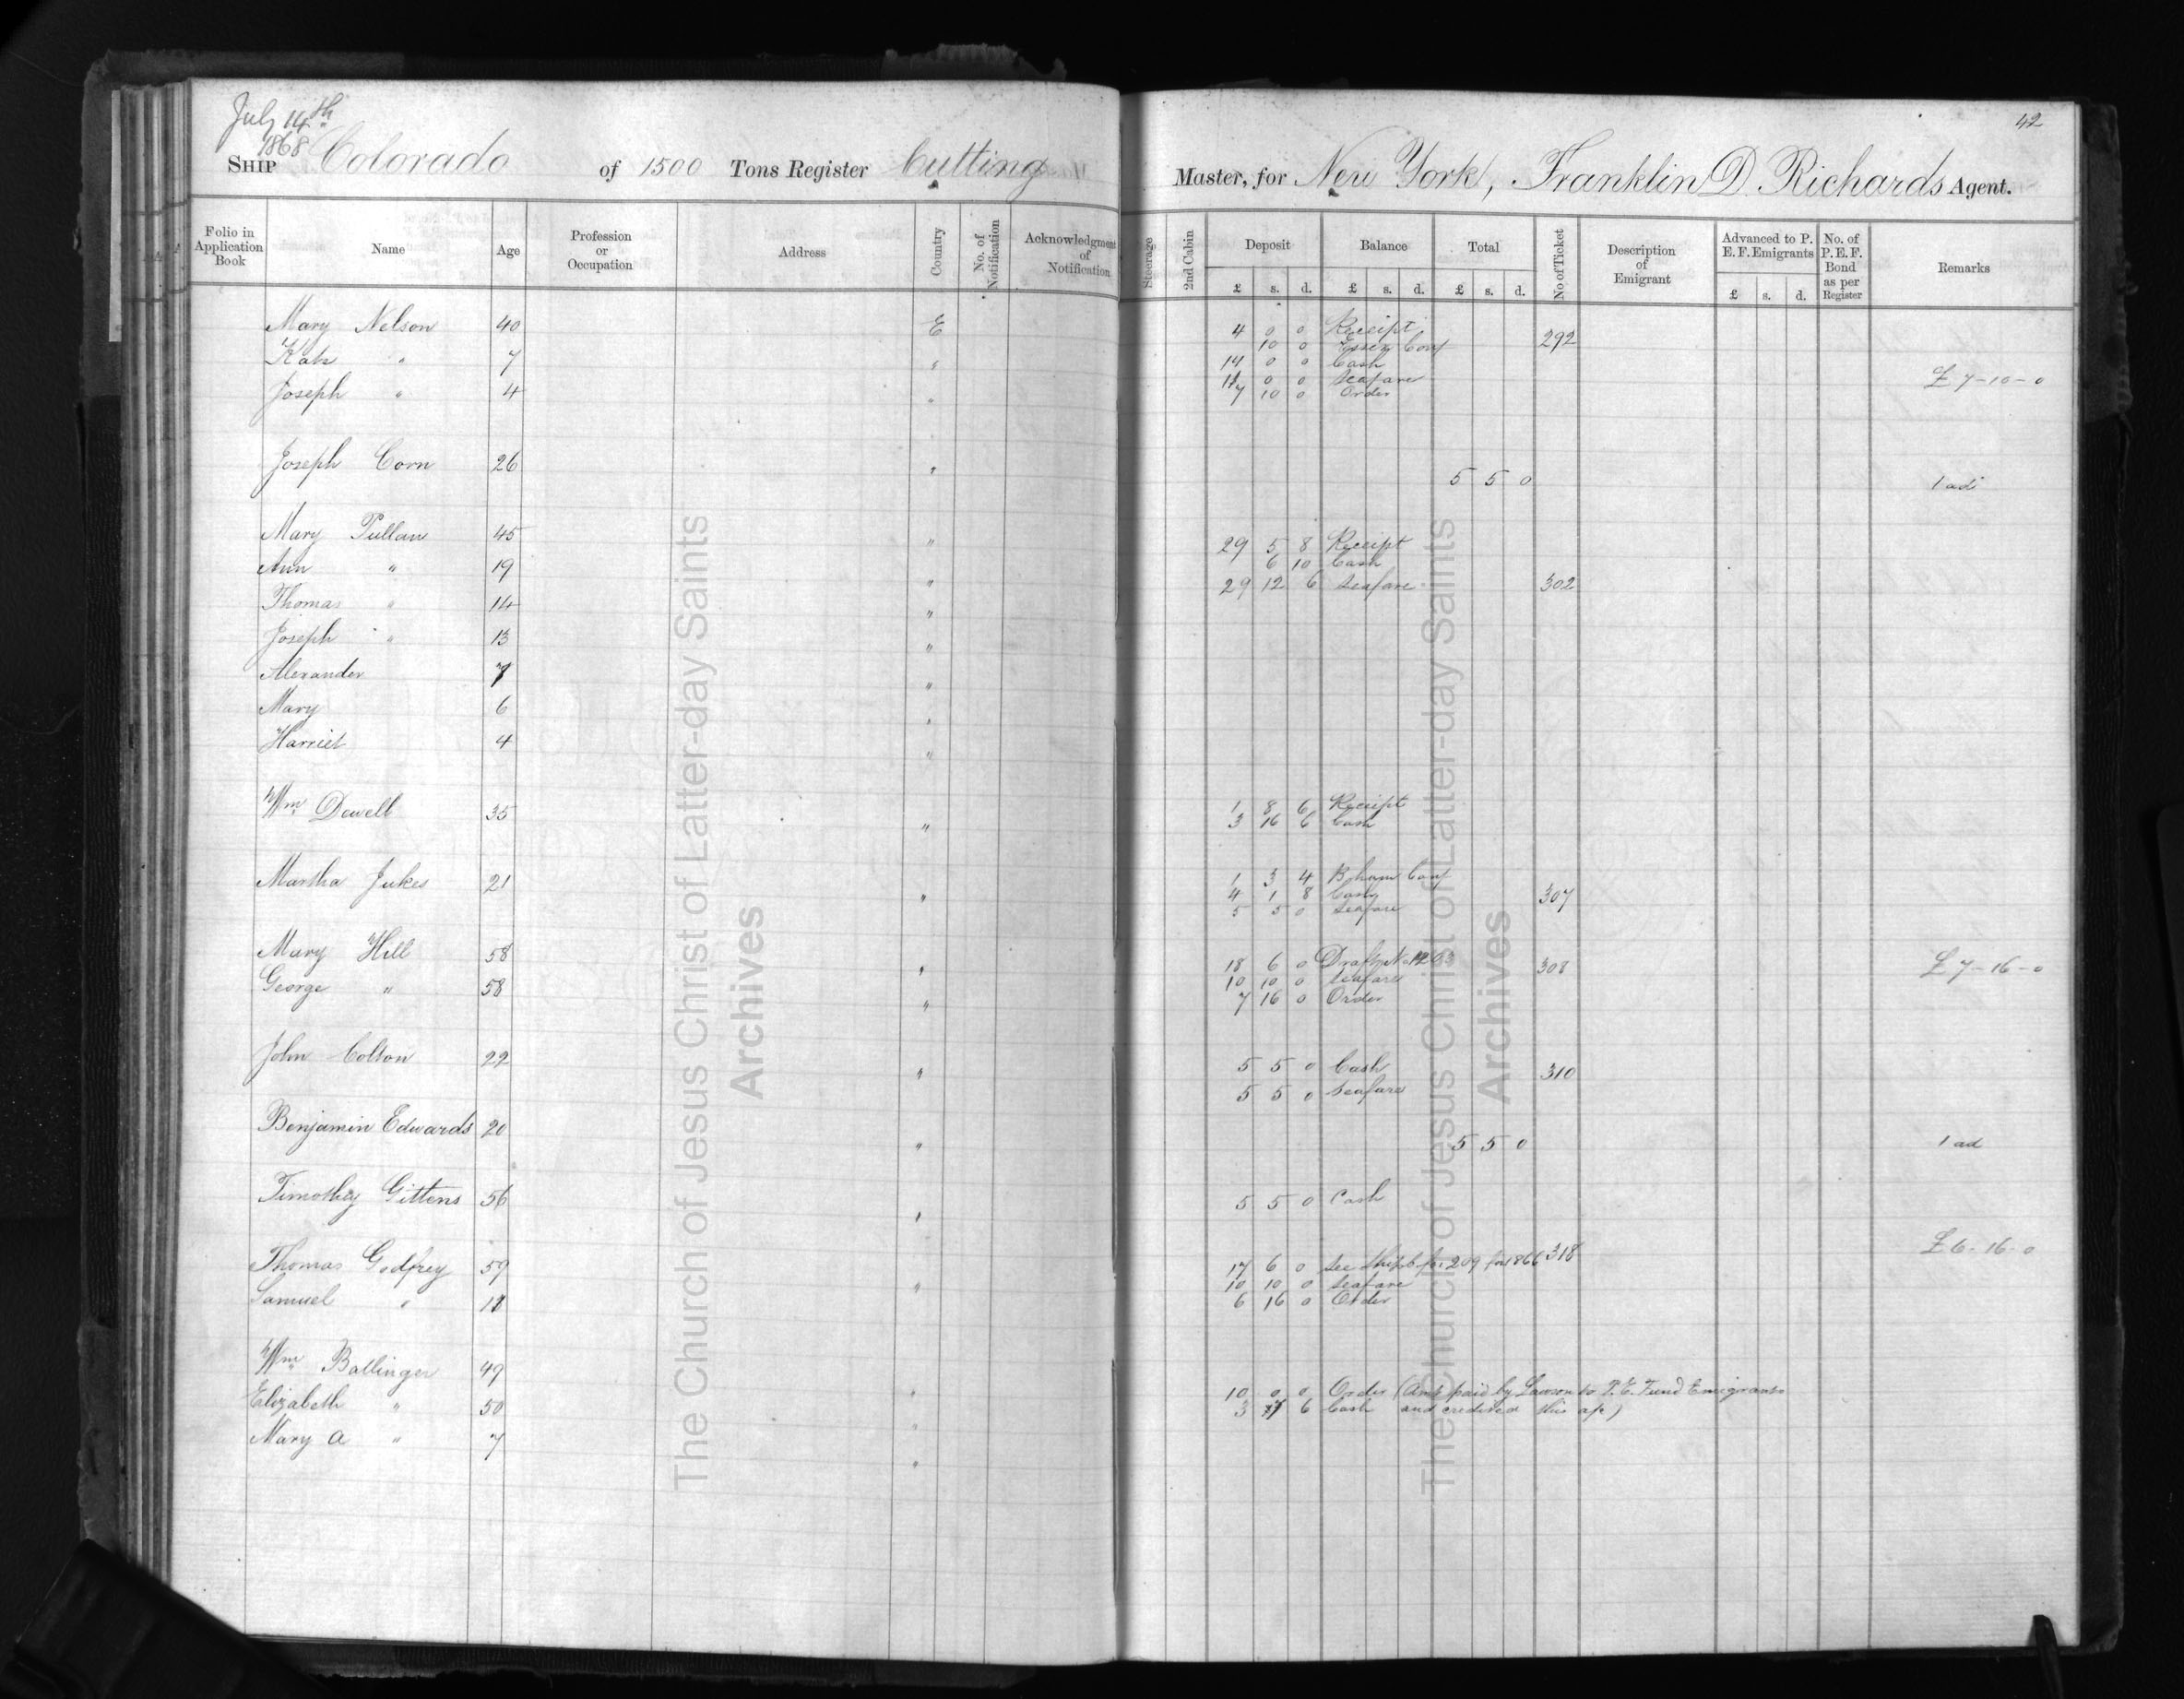 July 14th
1868
42
SHIP Colorado of 1500 Tons Register Cutting Master, for New York, Franklin D. Richards Agent.
Folio in Application Book Name Age Profession or Occupation Address Country No. of Notification Acknowledgment of Notification Steerage 2nd Cabin Deposit Balance Total No of Ticket Description of Emigrant Advanced to P. E. F. Emigrants No. of P. E. F. Bond as per Register Remarks
£ s. d. £ s. d. £ s. d. £ s. d.
Mary Nelson 40 E 4 0 0 Receipt 292
10 0 Essex Conf
Kate " 7 " 14 0 0 Cash
11 0 0 Seafare £7-10-0
Joseph " 4 " 7 10 0 Order
Joseph Corn 26 " 5 5 0 1 ad
Mary Pullan 45 " 29 5 8 Receipt
Ann " 19 " 6 10 Cash
29 12 6 Seafare 302
Thomas " 14 "
Joseph " 13 "
Alexander 7 "
Mary 6 "
Harriet 4 "
Wm Dewell 35 " 1 8 6 Receipt
3 16 6 Cash
Martha Jukes 21 " 1 3 4 B.ham Conf
4 1 8 Cash 307
5 5 0 Seafare
Mary Hill 58 " 18 6 0 Draft No 308 £7-16-0
George " 58 " 10 10 0 Seafare
7 16 0 Order
John Colton 22 " 5 5 0 Cash 310
5 5 0 Seafare
Benjamin Edwards 20 " 5 5 0 1 ad
Timothy Gittens 56 " 5 5 0 Cash
£6-16-0
Thomas Godfrey 59 " 17 6 0 See Ship 209 for 1866 318
10 10 0 Seafare
Samuel " 11 6 16 0 Order
Wm Ballinger 49 "
Elizabeth " 50 " 10 0 0 Order (Amt paid by Lawson to P. E. Fund Emigrants
3 7 6 Cash and credited this a/c)
Mary A " 7 "
The Church of Jesus Christ of Latter-day Saints
Archives
The Church of Jesus Christ of Latter-day Saints
Archives